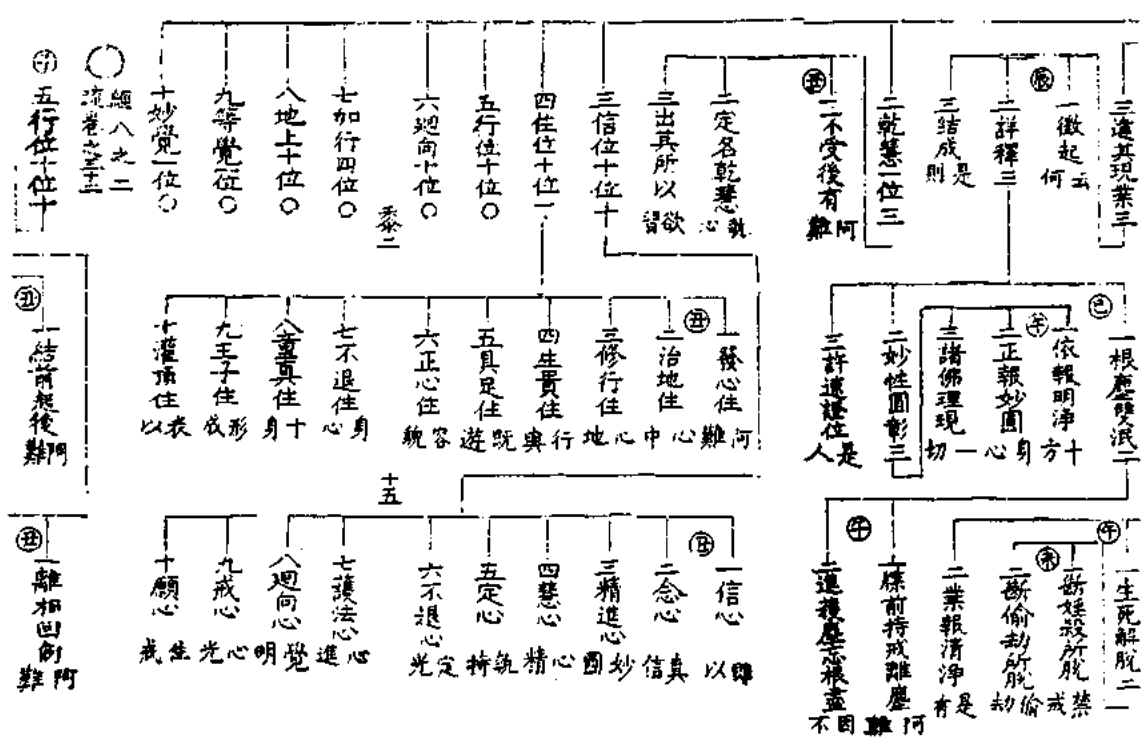 三違其現業三
辰
一徵起 云何
二詳釋三
三結成 是則
二乾慧一位三
丑
二不受後有 阿難
二定名乾慧 執心
三出其所以 欲習
三信位十位十
四住位十位一
五行位十位〇
六廻向十位〇
七加行四位〇
八地上十位〇
九等覺一位〇
十妙覺一位〇
黍二
〇題八之二
流卷之三十二
子
五行位十位十
巳
一根塵雙泯二
午
一依報明淨 十方
二正報妙圓 身心
三諸佛理現 一切
二妙性圓彰三
三許速證位 是人
丑
一發心住 阿難
二治地住 心中
三修行住 心地
四生貴住 行與
五具足住 既遊
六正心住 容貌
七不退住 身心
八童真住 十身
九王子住 形成
十灌頂住 表以
丑
一結前起後 阿難
十五
一生死解脫二
午
未
一斷婬殺所脫 禁戒
二斷偷劫所脫 偷劫
二業報清淨 是有
午
一牒前持戒離塵 阿難
二進獲塵忘根盡 因不
丑
一信心 即以
二念心 真信
三精進心 妙圓
四慧心 心精
五定心 執持
六不退心 定光
七護法心 心進
八廻向心 覺明
九戒心 心光
十願心 住戒
丑
一離相回向 阿難